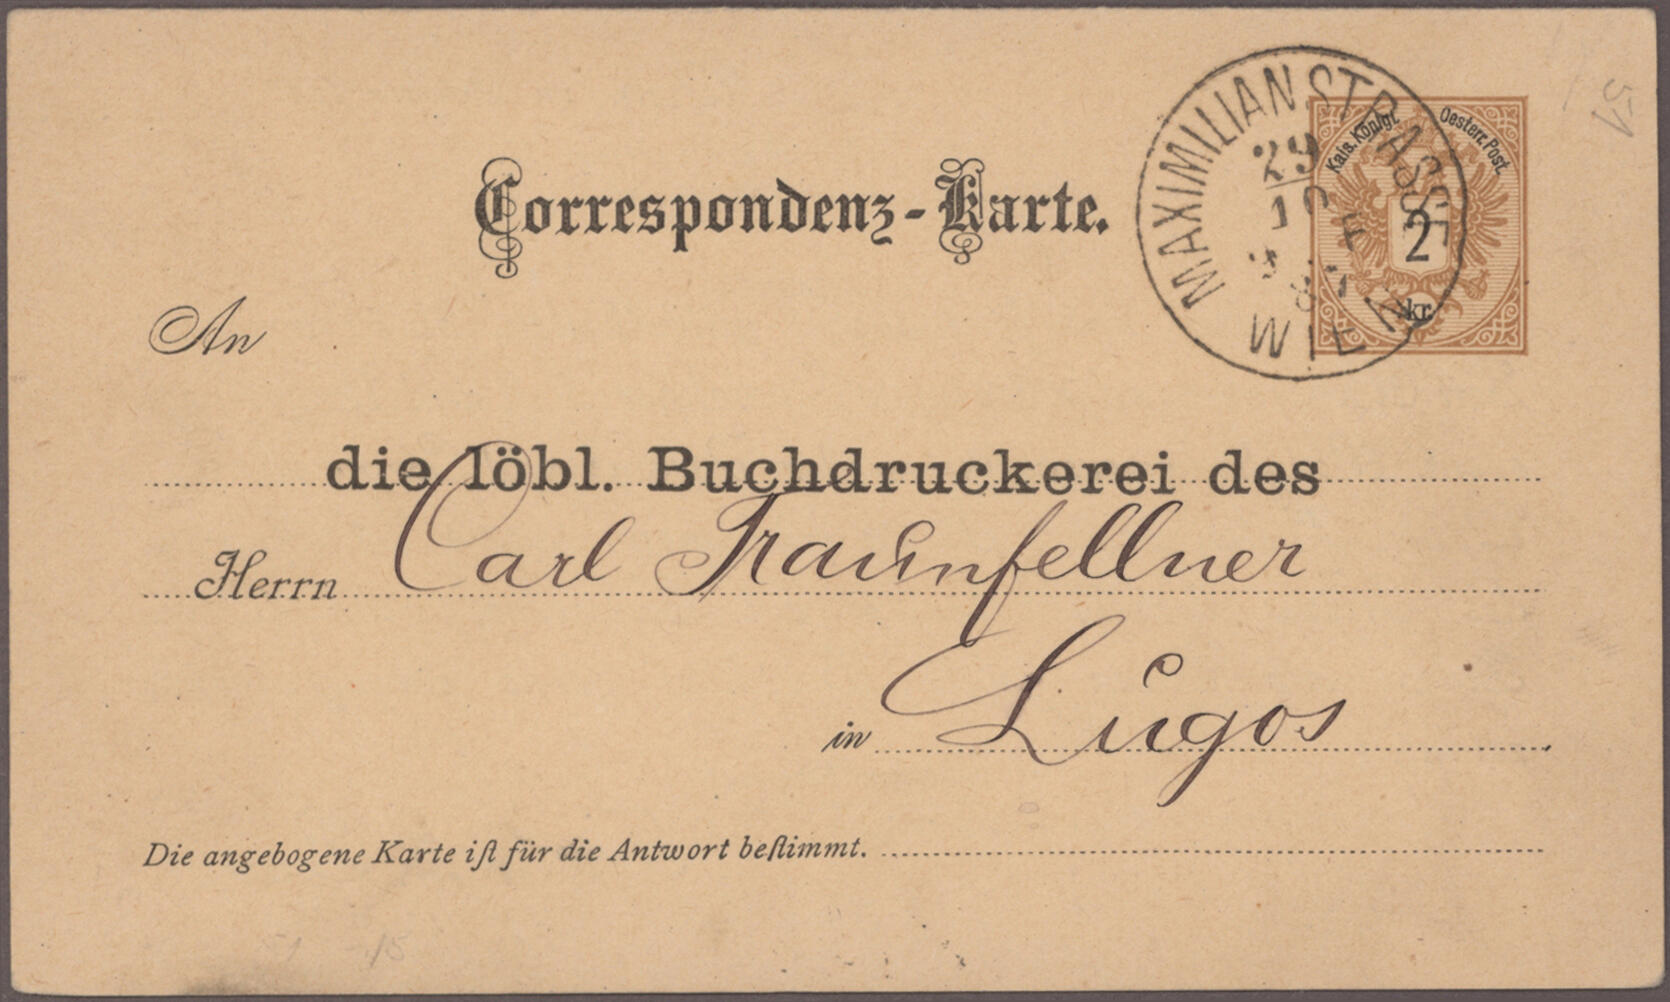 Correspondenz-Karte.
MAXIMILIANSTRASSE
29
10
WIEN
Kais. Königl. Oesterr. Post.
2
kr.
51
An
die löbl. Buchdruckerei des
Herrn Carl Traunfellner
in Lugos
Die angebogene Karte iſt für die Antwort beſtimmt.